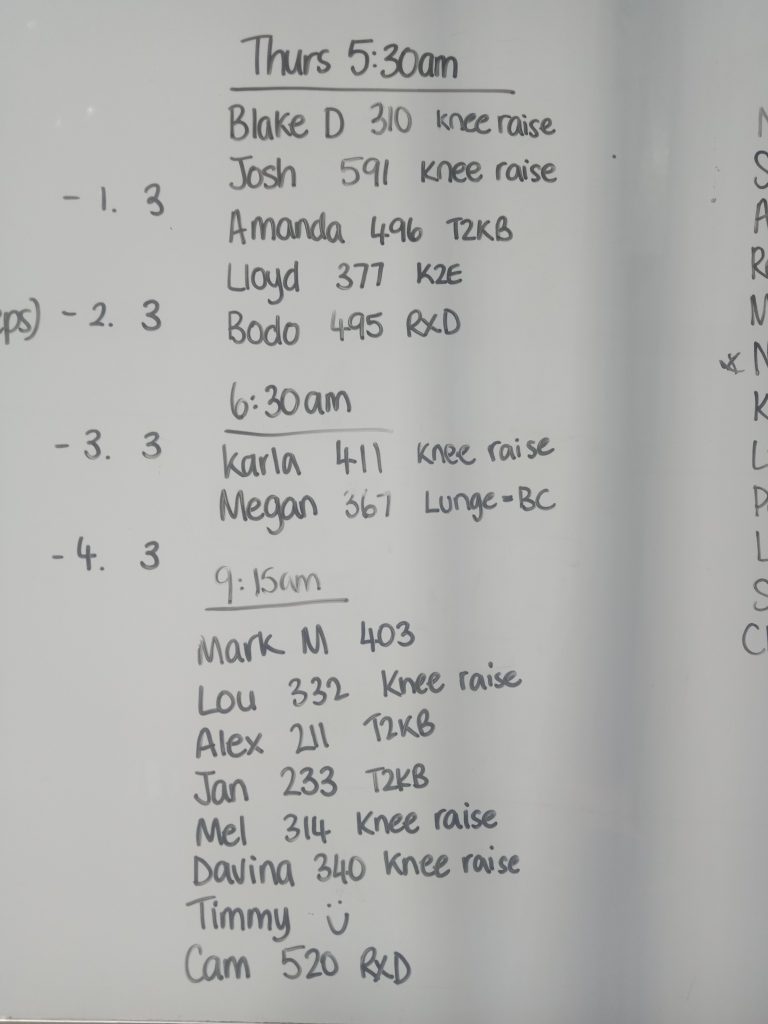 Thurs 5:30am
Blake D 310 Knee raise
Josh 591 Knee raise
Amanda 496 T2KB
Lloyd 377 K2E
Bodo 495 RXD
6:30am
Karla 411 Knee raise
Megan 367 Lunge-BC
9:15am
Mark M 403
Lou 332 Knee raise
Alex 211 T2KB
Jan 233 T2KB
Mel 314 Knee raise
Davina 340 Knee raise
Timmy
Cam 520 RXD
- 1. 3
- 2. 3
- 3. 3
- 4. 3